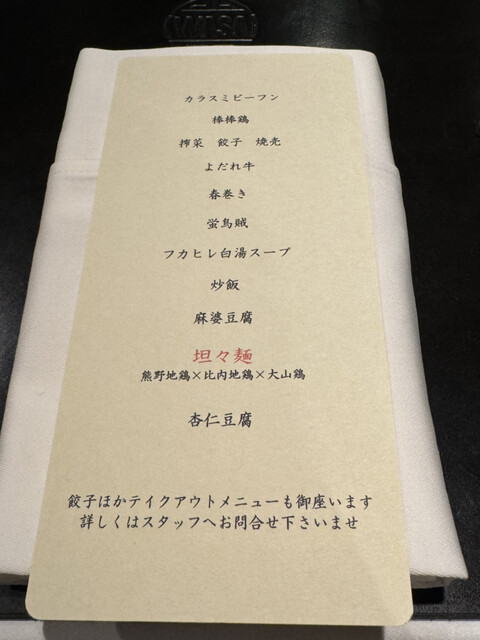 カラスミビーフン
棒棒鶏
搾菜　餃子　焼売
よだれ牛
春巻き
蛍烏賊
フカヒレ白湯スープ
炒飯
麻婆豆腐
坦々麺
熊野地鶏×比内地鶏×大山鶏
杏仁豆腐
餃子ほかテイクアウトメニューも御座います
詳しくはスタッフへお問合せ下さいませ